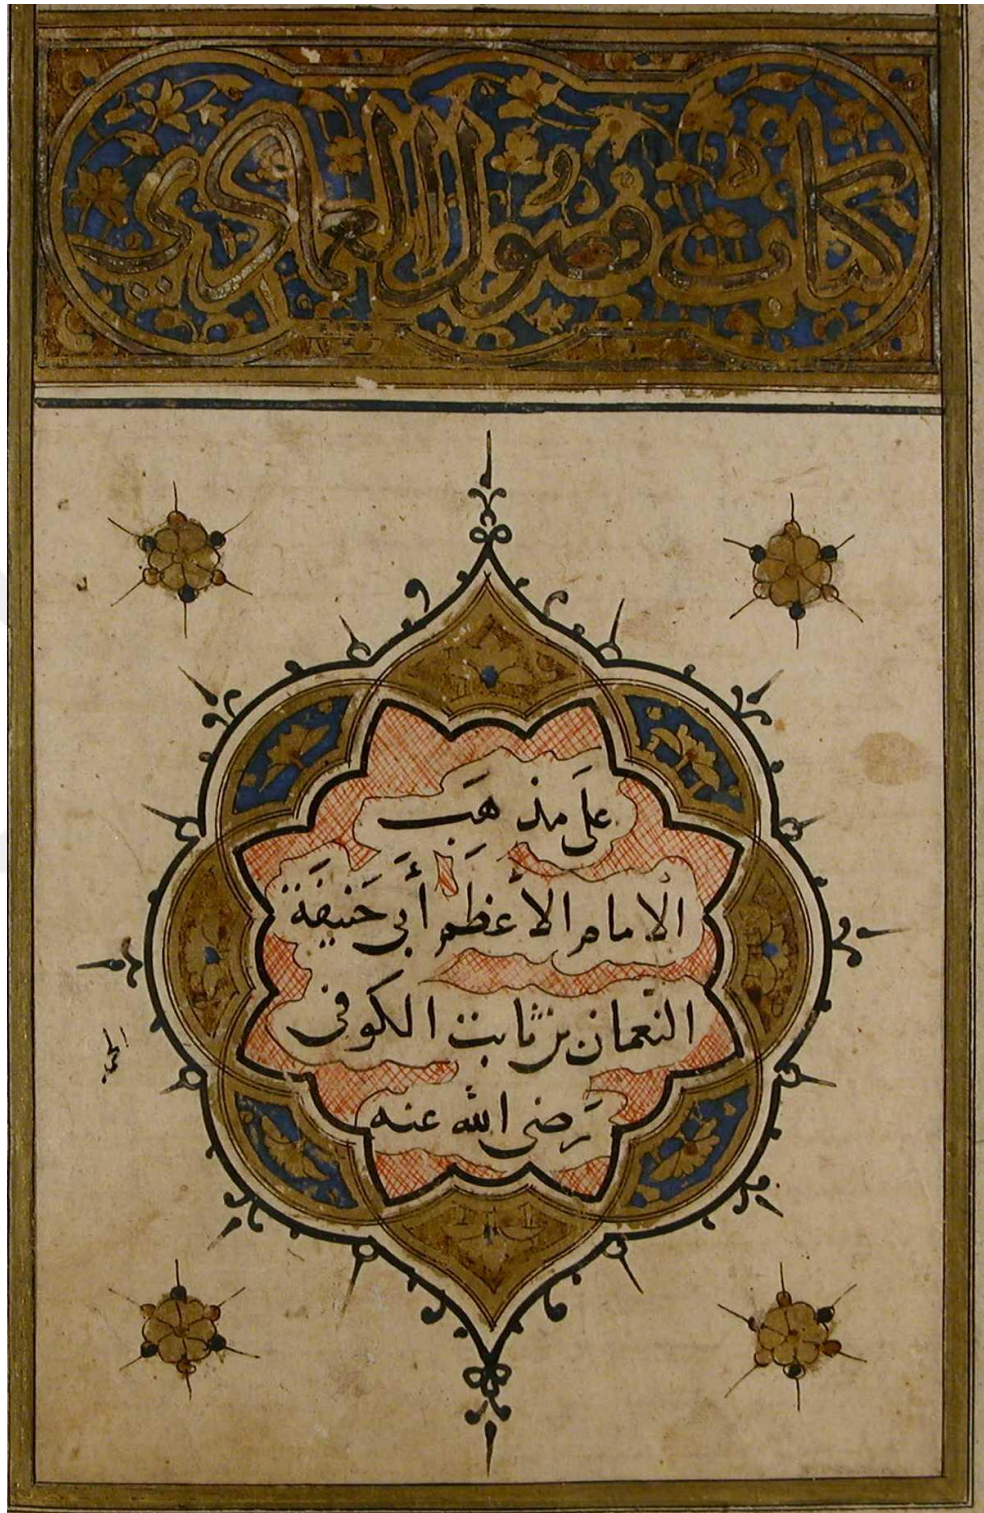 كتاب فصول العمادي
على مذهب
الإمام الأعظم أبي حنيفة
النعمان بن ثابت الكوفي
رضي الله عنه